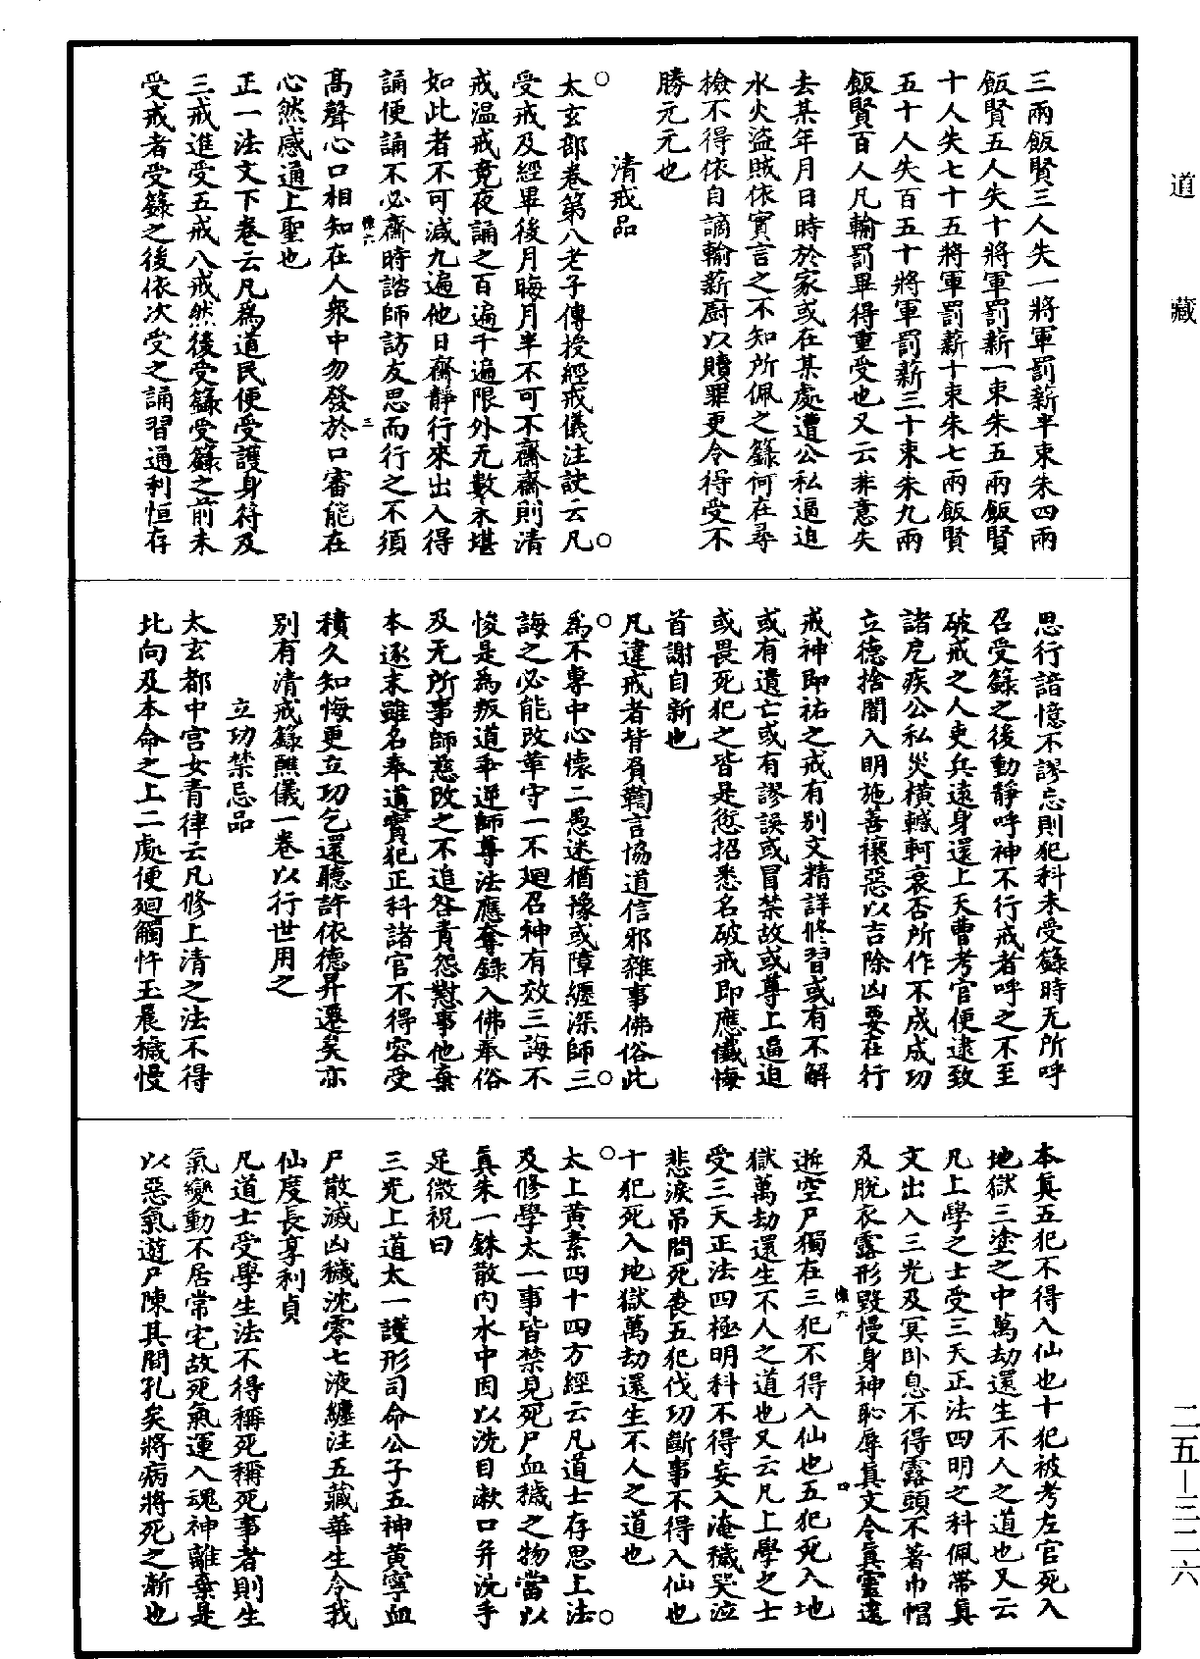 道藏
三兩飯賢三人失一將軍罰薪半束朱四兩
飯賢五人失十將軍罰薪一束朱五兩飯賢
十人失七十五將軍罰薪十束朱七兩飯賢
五十人失百五十將軍罰薪三十束朱九兩
飯賢百人凡輸罰畢得重受也又云非意失
去某年月日時於家或在某處遭公私逼迫
水火盜賊依實言之不知所佩之籙何在尋
檢不得依自謫輸薪廚以贖罪更令得受不
勝元元也
清戒品
太玄部卷第八老子傳授經戒儀注訣云凡
受戒及經畢後月晦月半不可不齋齋則清
戒温戒竟夜誦之百遍千遍限外无數未堪
如此者不可減九遍他日齋靜行來出入得
誦便誦不必齋時諮師訪友思而行之不須
高聲心口相知在人衆中勿發於口審能在
心然感通上聖也
正一法文下卷云凡爲道民便受護身符及
三戒進受五戒八戒然後受籙受籙之前未
受戒者受籙之後依次受之誦習通利恒存
思行諳憶不謬忘則犯科未受籙時无所呼
召受籙之後動靜呼神不行戒者呼之不至
破戒之人吏兵遠身還上天曹考官便逮致
諸厄疾公私災橫轗軻衰否所作不成成功
立德捨闇入明施善禳惡以吉除凶要在行
戒神即祐之戒有别文精詳修習或有不解
或有遺亡或有謬誤或冒禁故或尊上逼迫
或畏死犯之皆是愆招悉名破戒即應懺悔
首謝自新也
凡違戒者背負鞫言協道信邪雜事佛俗此
爲不專中心懷二愚迷猶豫或障纏深師三
誨之必能改革守一不迴召神有效三誨不
悛是爲叛道乖逆師尊法應奪録入佛奉俗
及无所事師慈改之不追咎責怨懟事他棄
本逐末雖名奉道實犯正科諸官不得容受
積久知悔更立功乞還聽許依德昇遷矣亦
别有清戒籙醮儀一卷以行世用之
立功禁忌品
太玄都中宫女青律云凡修上清之法不得
北向及本命之上二處便迴觸忤玉晨穢慢
本真五犯不得入仙也十犯被考左官死入
地獄三塗之中萬劫還生不人之道也又云
凡上學之士受三天正法四明之科佩帶真
文出入三光及冥卧息不得露頭不著巾帽
及脱衣露形毀慢身神恥辱真文令真靈遠
逝空尸獨在三犯不得入仙也五犯死入地
獄萬劫還生不人之道也又云凡上學之士
受三天正法四極明科不得妄入淹穢哭泣
悲淚吊問死喪五犯伐功斷事不得入仙也
十犯死入地獄萬劫還生不人之道也
太上黄素四十四方經云凡道士存思上法
及修學太一事皆禁見死尸血穢之物當以
真朱一銖散内水中因以洗目漱口并洗手
足微祝曰
三光上道太一護形司命公子五神黄寧血
尸散滅凶穢沈零七液纏注五藏華生令我
仙度長享利貞
凡道士受學生法不得稱死稱死事者則生
氣變動不居常宅故死氣運入魂神離棄是
以惡氣遊尸陳其間孔矣將病將死之漸也
二五—三二六